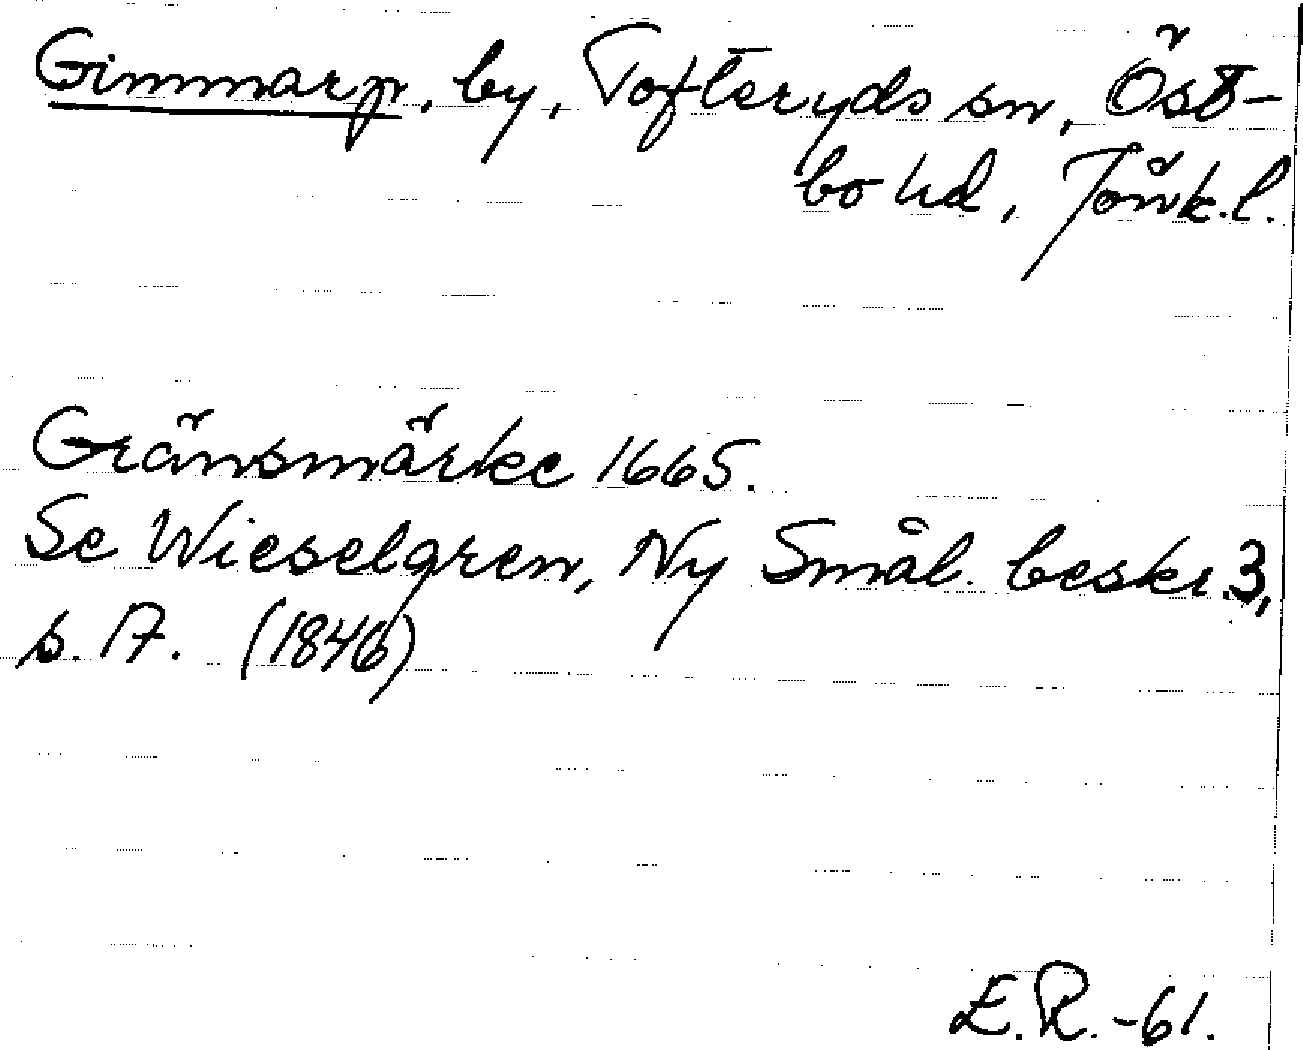 Gimmarp, by, Tofteryds sn, Öst-
bo hd, Jönk.l.
Gränsmärke 1665.
Se Wieselgren, Ny Smål. beskr. 3,
s. 17. (1846)
E.R.-61.